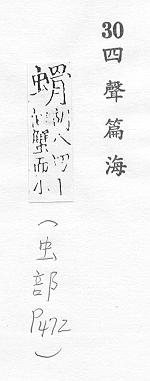 30 四聲篇海
八切
蟹而小
(虫部
P472)